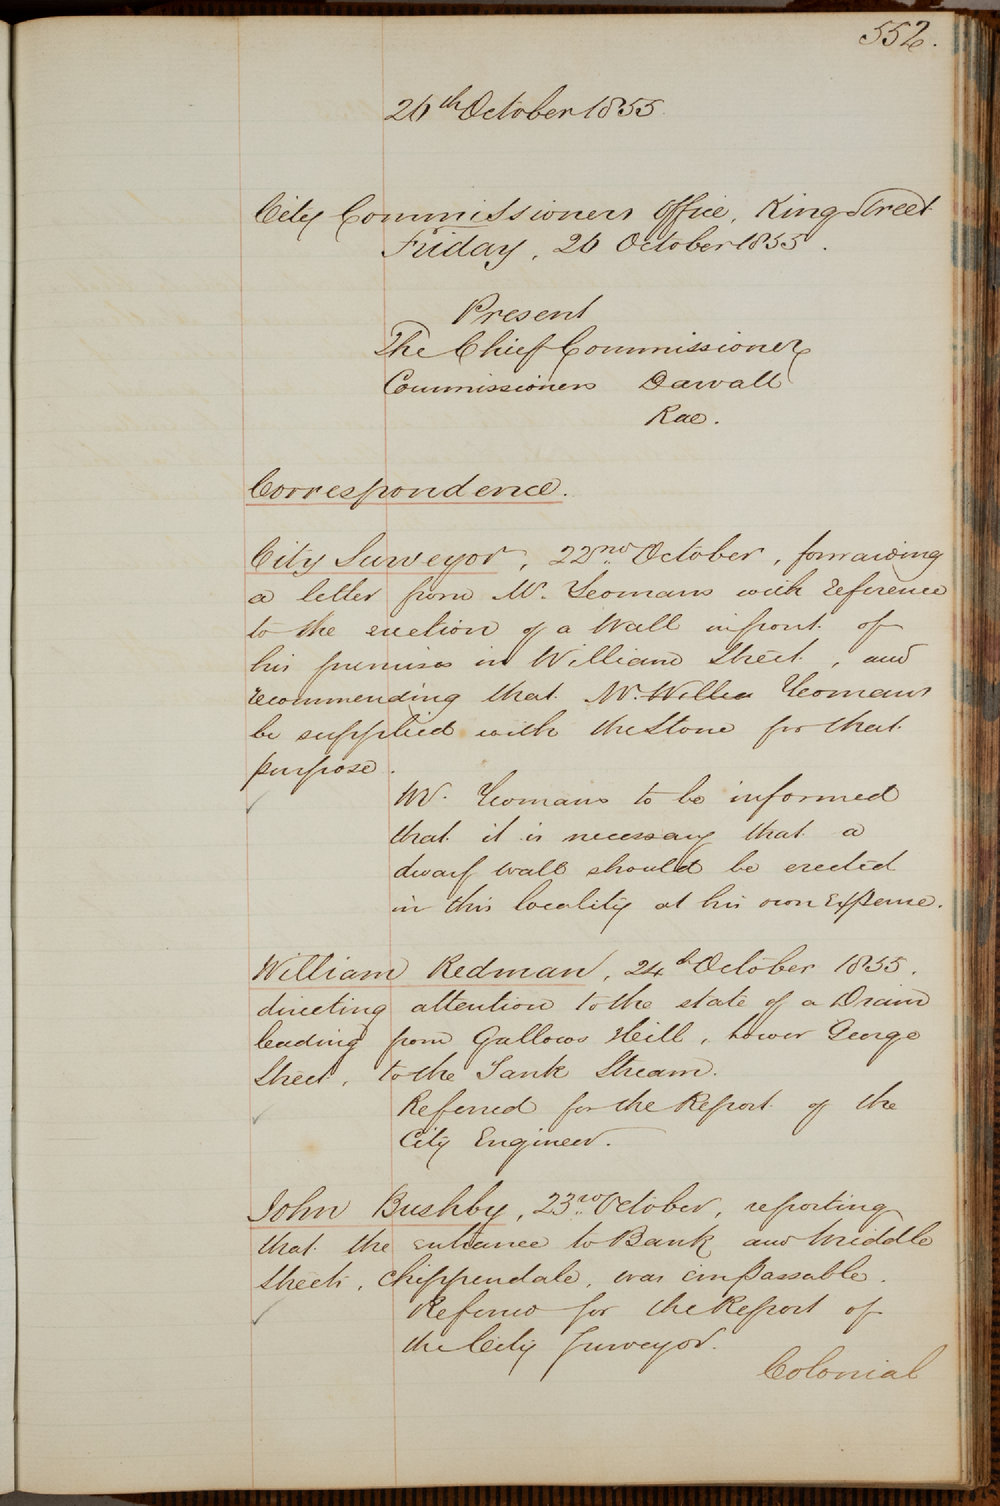 552.
26th October 1855.
City Commissioners Office, King Street
Friday, 26 October 1855.
Present
The Chief Commissioner
Commissioners Darvall
Rae.
Correspondence.
City Surveyor, 22nd October, forwarding
a letter from Mr. Yeomans with reference
to the erection of a Wall in front of
his premises in William Street, and
recommending that Mr. Yeomans
be supplied with the Stone for that
purpose.
Mr. Yeomans to be informed
that it is necessary that a
dwarf wall should be erected
in this locality at his own Expense.
William Redman, 24th October 1855,
directing attention to the state of a Drain
leading from Gallows Hill, Lower George
Street, to the Tank Stream.
Referred for the Report of the
City Engineer.
John Bushby, 23rd October, reporting
that the entrance to Bank and Middle
Streets, Chippendale, was impassable.
Referred for the Report of
the City Surveyor.
Colonial